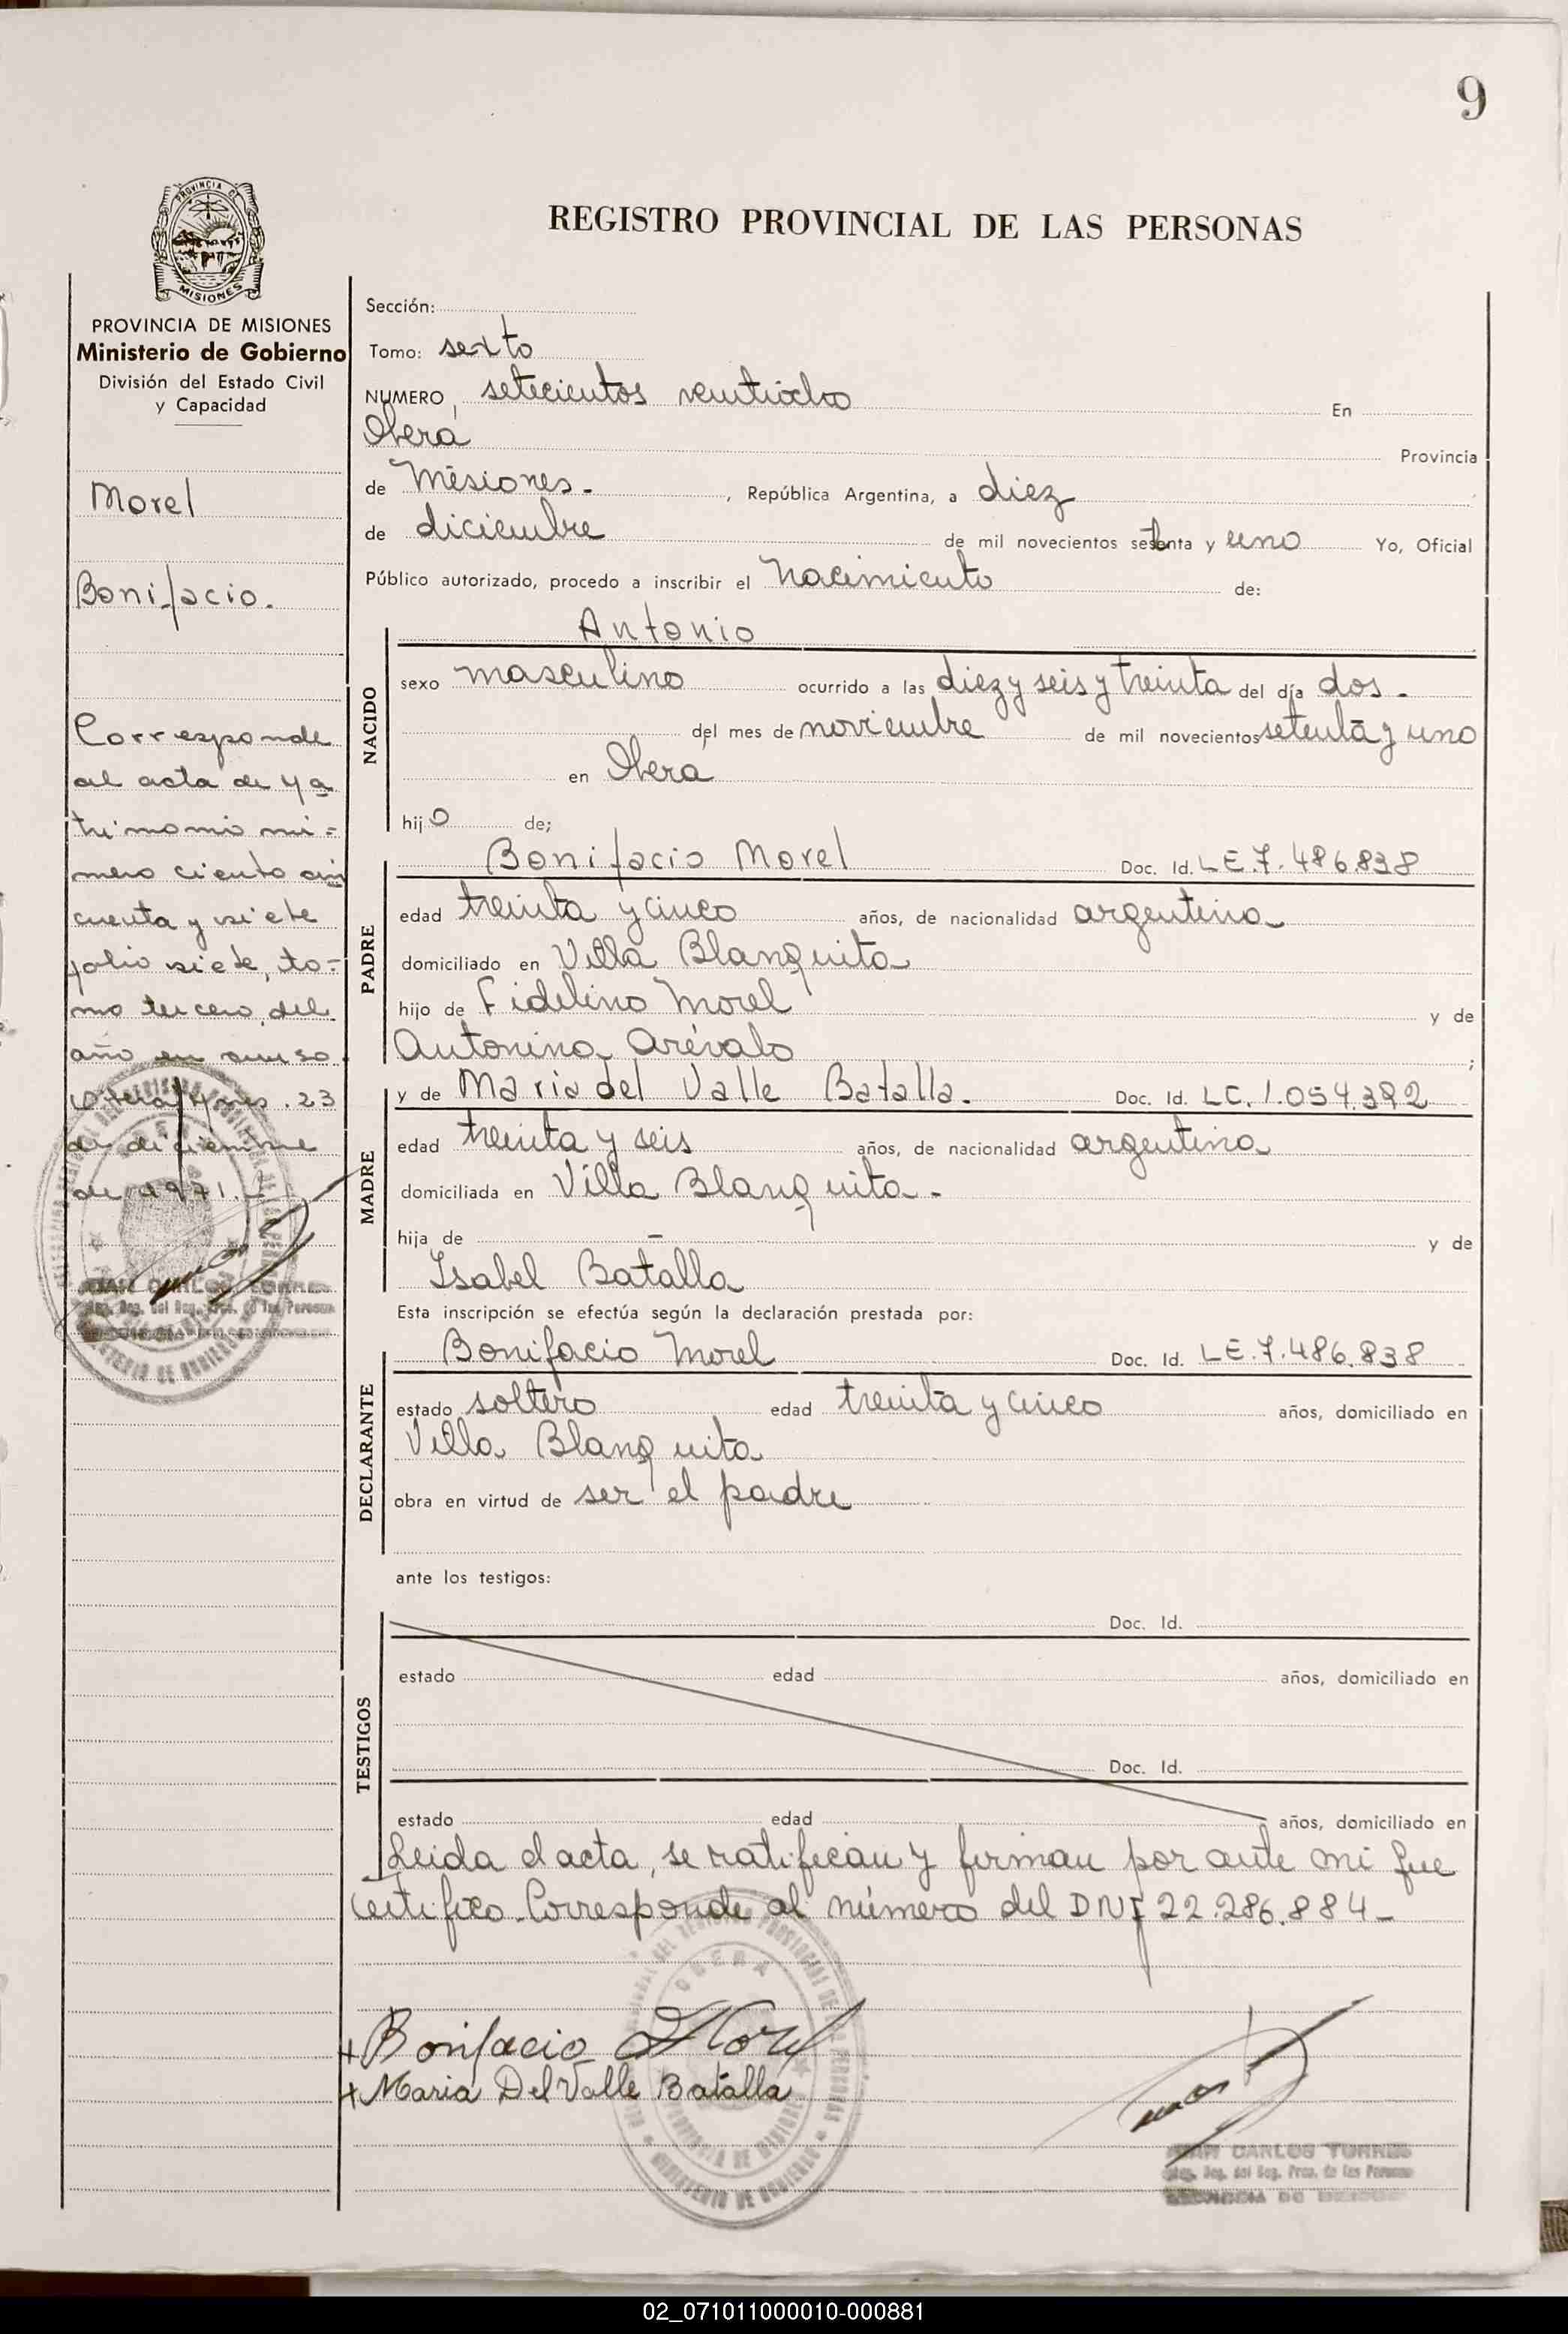 9
PROVINCIA DE
MISIONES
REGISTRO PROVINCIAL DE LAS PERSONAS
PROVINCIA DE MISIONES
Ministerio de Gobierno
División del Estado Civil
y Capacidad
Morel
Bonifacio.
Corresponde
al acta de Ma
trimonio nú=
mero ciento cin
cuenta y siete
folio siete, to=
mo tercero, del
año en curso.
Oberá, Mnes. 23
de diciembre
de 1971.-
JUAN CARLOS TORRES
Sección:
Tomo: sexto
NUMERO, setecientos veintiocho En
Oberá Provincia
de Misiones.- , República Argentina, a diez
de diciembre de mil novecientos setenta y uno Yo, Oficial
Público autorizado, procedo a inscribir el nacimiento de:
NACIDO
Antonio
sexo masculino ocurrido a las diez y seis y treinta del día dos.-
del mes de noviembre de mil novecientos setenta y uno
en Oberá
hijo de;
PADRE
Bonifacio Morel Doc. Id. LE.7.486.838
edad treinta y cinco años, de nacionalidad argentina
domiciliado en Villa Blanquita
hijo de Fidelino Morel y de
Antonina Arévalo ;
MADRE
y de Maria del Valle Batalla. Doc. Id. LC.1.054.392
edad treinta y seis años, de nacionalidad argentina
domiciliada en Villa Blanquita.-
hija de - y de
Isabel Batalla
Esta inscripción se efectúa según la declaración prestada por:
DECLARANTE
Bonifacio Morel Doc. Id. LE.7.486.838
estado soltero edad treinta y cinco años, domiciliado en
Villa Blanquita
obra en virtud de ser el padre
ante los testigos:
TESTIGOS
Doc. Id.
estado edad años, domiciliado en
Doc. Id.
estado edad años, domiciliado en
Leida el acta, se ratifican y firman por ante mi que
certifico. Corresponde al número del DNI 22.286.884-
+ Bonifacio Morel
+ Maria Del Valle Batalla
JUAN CARLOS TORRES
02_071011000010-000881